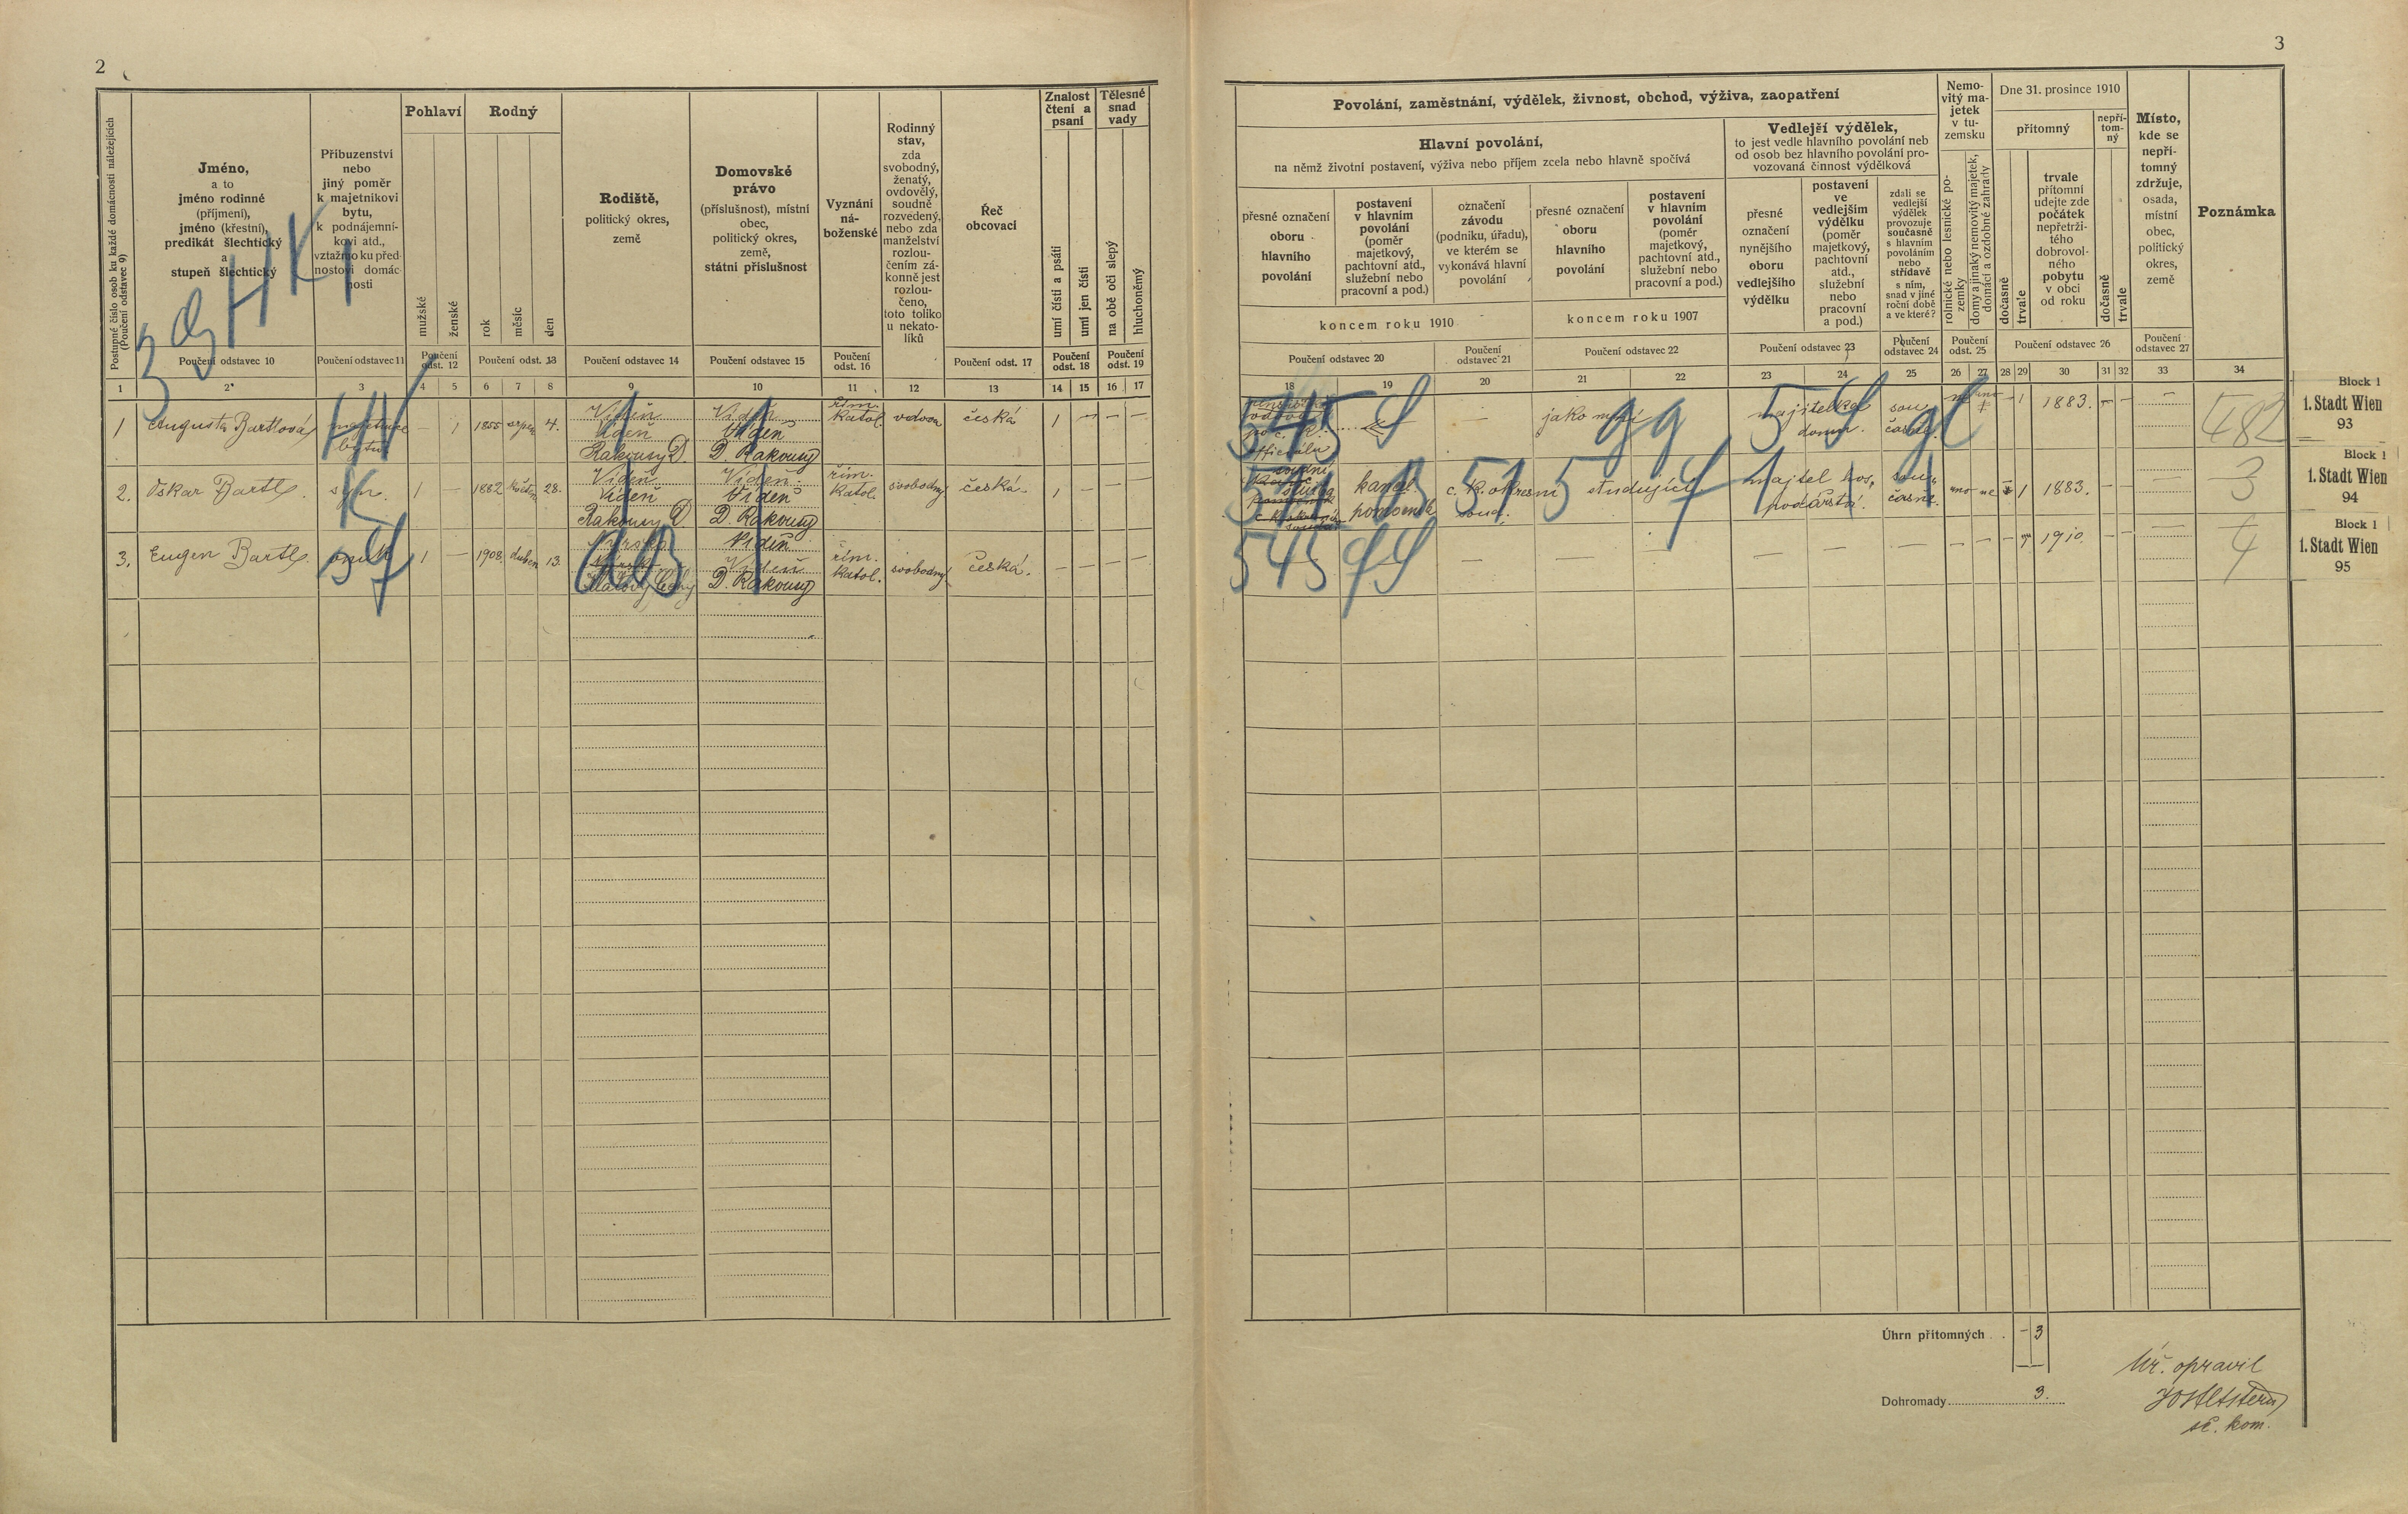 2
3
Postupné číslo osob ku každé domácnosti náležejících
(Poučení odstavec 9)
Jméno,
a to
jméno rodinné
(příjmení),
jméno (křestní),
predikát šlechtický
a
stupeň šlechtický
Poučení odstavec 10
Příbuzenství
nebo
jiný poměr
k majetníkovi
bytu,
k podnájemní-
kovi atd.,
vztažmo ku před-
nostovi domác-
nosti
Poučení odstavec 11
Pohlaví
mužské
ženské
Poučení
odst. 12
Rodný
rok
měsíc
den
Poučení odst. 13
Rodiště,
politický okres,
země
Poučení odstavec 14
Domovské
právo
(příslušnost), místní
obec,
politický okres,
země,
státní příslušnost
Poučení odstavec 15
Vyznání
ná-
boženské
Poučení
odst. 16
Rodinný
stav,
zda
svobodný,
ženatý,
ovdovělý,
soudně
rozvedený,
nebo zda
manželství
rozlou-
čením zá-
konně jest
rozlou-
čeno,
toto toliko
u nekato-
líků
Řeč
obcovací
Poučení odst. 17
Znalost
čtení a
psaní
umí čísti a psáti
umí jen čísti
Poučení
odst. 18
Tělesné
snad
vady
na obě oči slepý
hluchoněmý
Poučení
odst. 19
1 2 3 4 5 6 7 8 9 10 11 12 13 14 15 16 17
Povolání, zaměstnání, výdělek, živnost, obchod, výživa, zaopatření
Hlavní povolání,
na němž životní postavení, výživa nebo příjem zcela nebo hlavně spočívá
přesné označení
oboru
hlavního
povolání
postavení
v hlavním
povolání
(poměr
majetkový,
pachtovní atd.,
služební nebo
pracovní a pod.)
označení
závodu
(podniku, úřadu),
ve kterém se
vykonává hlavní
povolání
koncem roku 1910
přesné označení
oboru
hlavního
povolání
postavení
v hlavním
povolání
(poměr
majetkový,
pachtovní atd.,
služební nebo
pracovní a pod.)
koncem roku 1907
Poučení odstavec 20
Poučení
odstavec 21
Poučení odstavec 22
Vedlejší výdělek,
to jest vedle hlavního povolání neb
od osob bez hlavního povolání pro-
vozovaná činnost výdělková
přesné
označení
nynějšího
oboru
vedlejšího
výdělku
postavení
ve
vedlejším
výdělku
(poměr
majetkový,
pachtovní
atd.,
služební
nebo
pracovní
a pod.)
Poučení odstavec 23
zdali se
vedlejší
výdělek
provozuje
současně
s hlavním
povoláním
nebo
střídavě
s ním,
snad v jiné
roční době
a ve které?
Poučení
odstavec 24
Nemo-
vitý ma-
jetek
v tu-
zemsku
rolnické nebo lesnické po-
zemky
domy a jinaký nemovitý majetek,
domácí a ozdobné zahrady
Poučení
odst. 25
Dne 31. prosince 1910
přítomný
dočasně
trvale
trvale
přítomní
udejte zde
počátek
nepřetrži-
tého
dobrovol-
ného
pobytu
v obci
od roku
nepří-
tom-
ný
dočasně
trvale
Poučení odstavec 26
Místo,
kde se
nepří-
tomný
zdržuje,
osada,
místní
obec,
politický
okres,
země
Poučení
odstavec 27
Poznámka
18 19 20 21 22 23 24 25 26 27 28 29 30 31 32 33 34
1 Augusta Bartlová — 1 1855 srpen 4. Vídeň Vídeň řím. katol. vdova česká 1 — — —
Vídeň Vídeň
Rakousy D. D. Rakousy
jako nyní majitelka domu. 1 1883. —
482
2. Oskar Bartl. syn. 1 — 1882 28. Vídeň Vídeň řím. katol. svobodný česká 1 — — —
Vídeň Vídeň
Rakousy D. D. Rakousy
soudní
kanc. pomocník c. k. okresní soud. studující majitel hos. podářství. sou-časně. ano ne 1 1883. — —
3
3. Eugen Bartl. vnuk 1 — 1908 duben 13. Nýrsko Vídeň řím. katol. svobodný česká. — — — —
Vídeň
D. Rakousy
— — — — — 1910 — —
4
Block 1
1. Stadt Wien
93
Block 1
1. Stadt Wien
94
Block 1
1. Stadt Wien
95
Úhrn přítomných . . — 3
Dohromady 3.
opravil
kom.